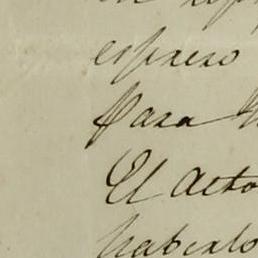 espreso
Para
El Acto
haberlo